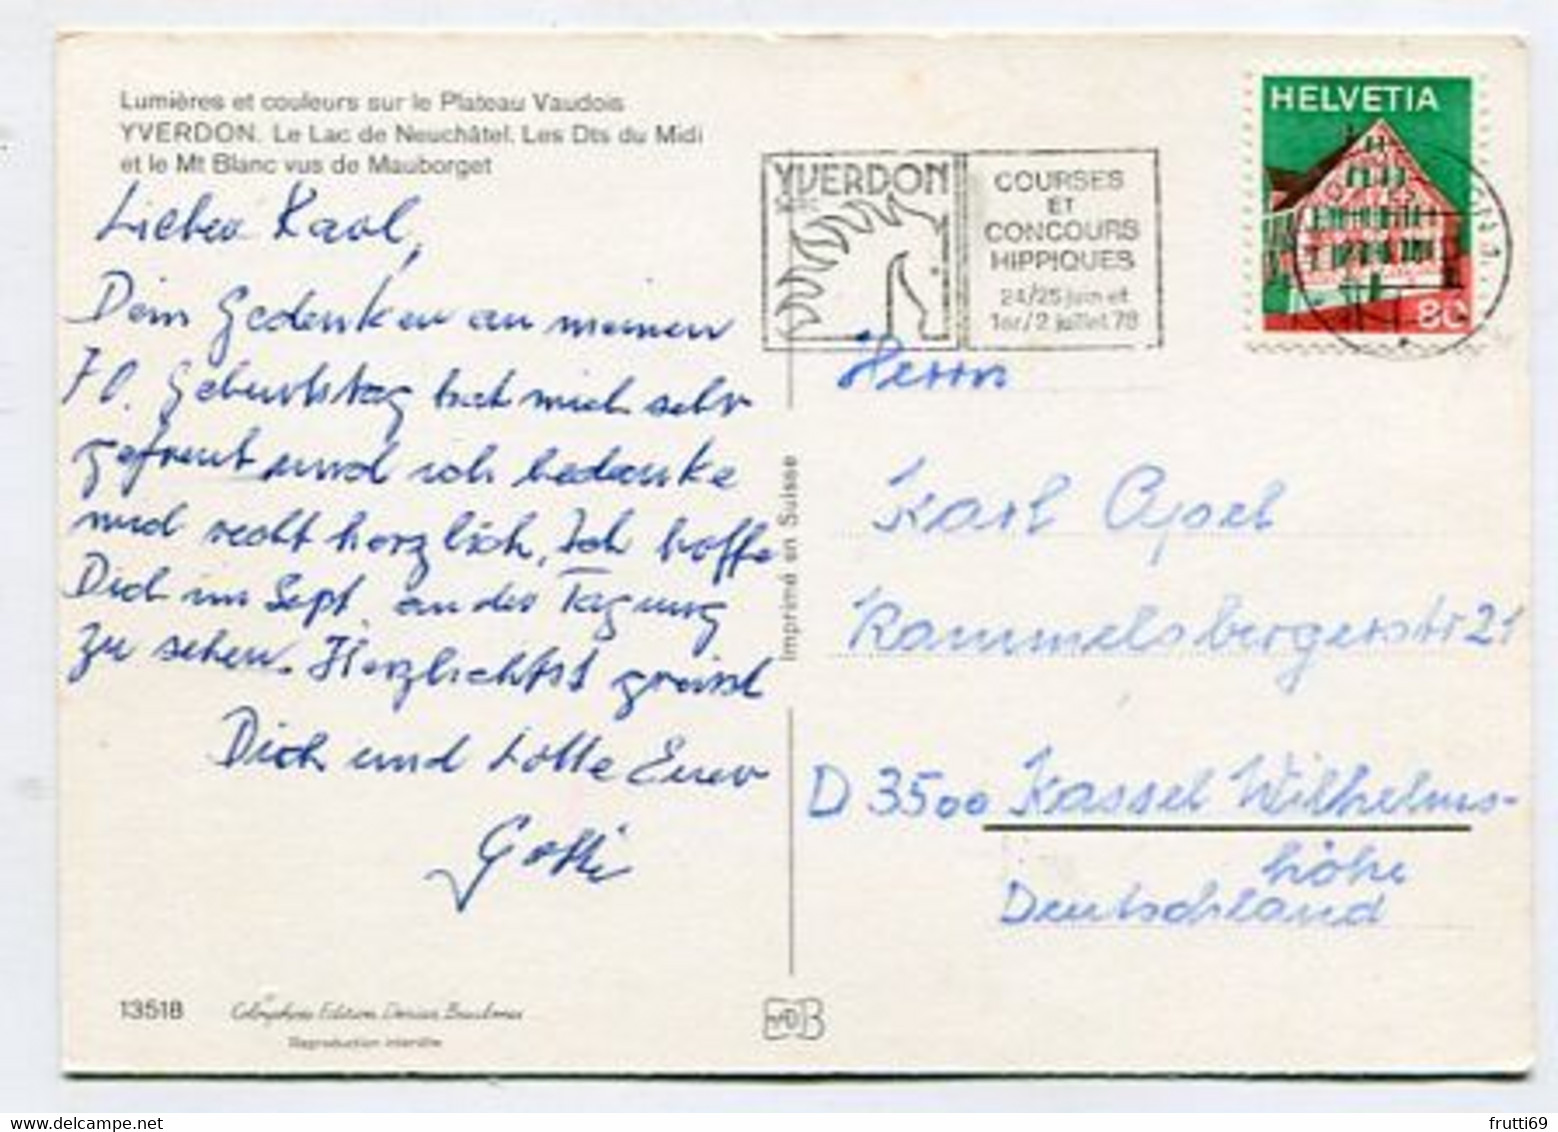 Lumières et couleurs sur le Plateau Vaudois
YVERDON. Le Lac de Neuchâtel. Les Dts du Midi
et le Mt Blanc vus de Mauborget
Lieber Karl,
Dein Gedenken an meinen
70. Geburtstag hat mich sehr
gefreut und ich bedanke
mich recht herzlich. Ich hoffe
Dich im Sept. an der Tagung
zu sehen. Herzlichst grüsst
Dich und Lotte Euer
YVERDON
COURSES
ET
CONCOURS
HIPPIQUES
24/25 juin et
1er/2 juillet 78
HELVETIA
80
Herrn
Karl Apel
Rammelsbergerstr 21
D 3500 Kassel Wilhelms-
höhe
Deutschland
Imprimé en Suisse
13518
Reproduction interdite
frutti69